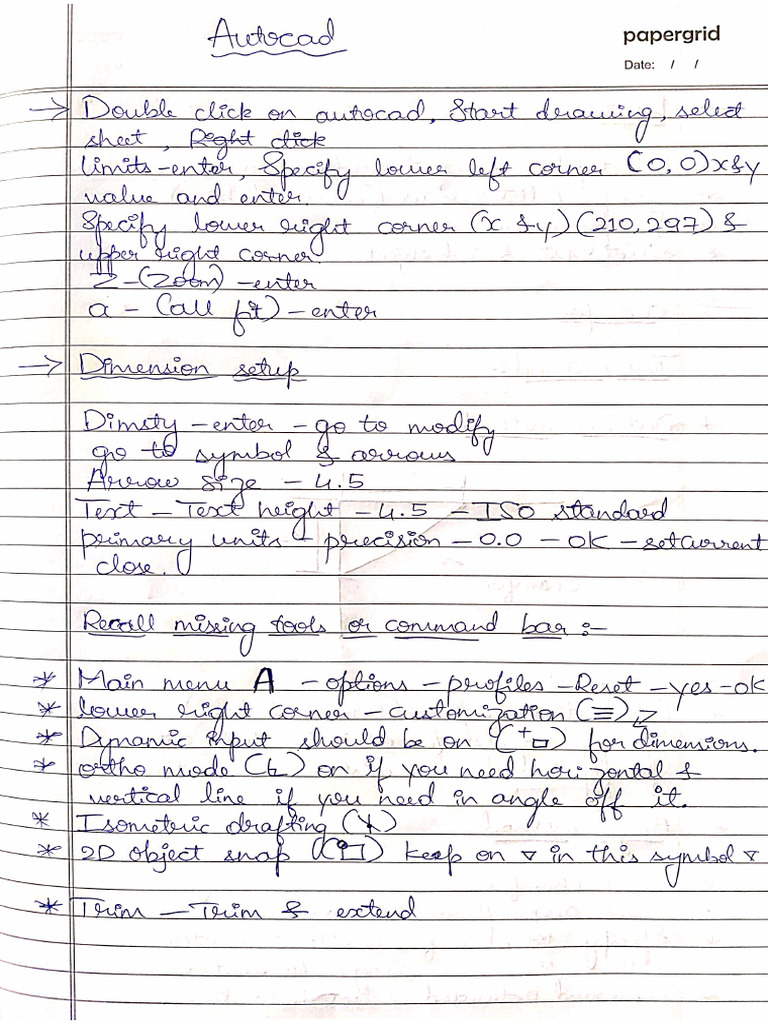 Autocad
papergrid
Date: / /
→ Double click on autocad, Start drawing, select
sheet, Right click
limits-enter, Specify lower left corner (0,0) x & y
value and enter.
Specify lower right corner (x & y) (210,297) &
upper right corner.
Z-(Zoom) -enter
a - (all fit) - enter
→ Dimension setup
Dimsty - enter - go to modify
go to symbol & arrows
Arrow size - 4.5
Text - Text height - 4.5 - ISO standard
primary units - precision - 0.0 - OK - set current
close.
Recall missing tools or command bar :-
* Main menu A - options - profiles - Reset - yes - ok
* lower right corner - customization (≡)
* Dynamic input should be on (+▭) for dimensions.
* ortho mode (∟) on if you need horizontal &
vertical line if you need in angle off it.
* Isometric drafting
* 2D object snap keep on ▽ in this symbol ▽
* Trim - Trim & extend